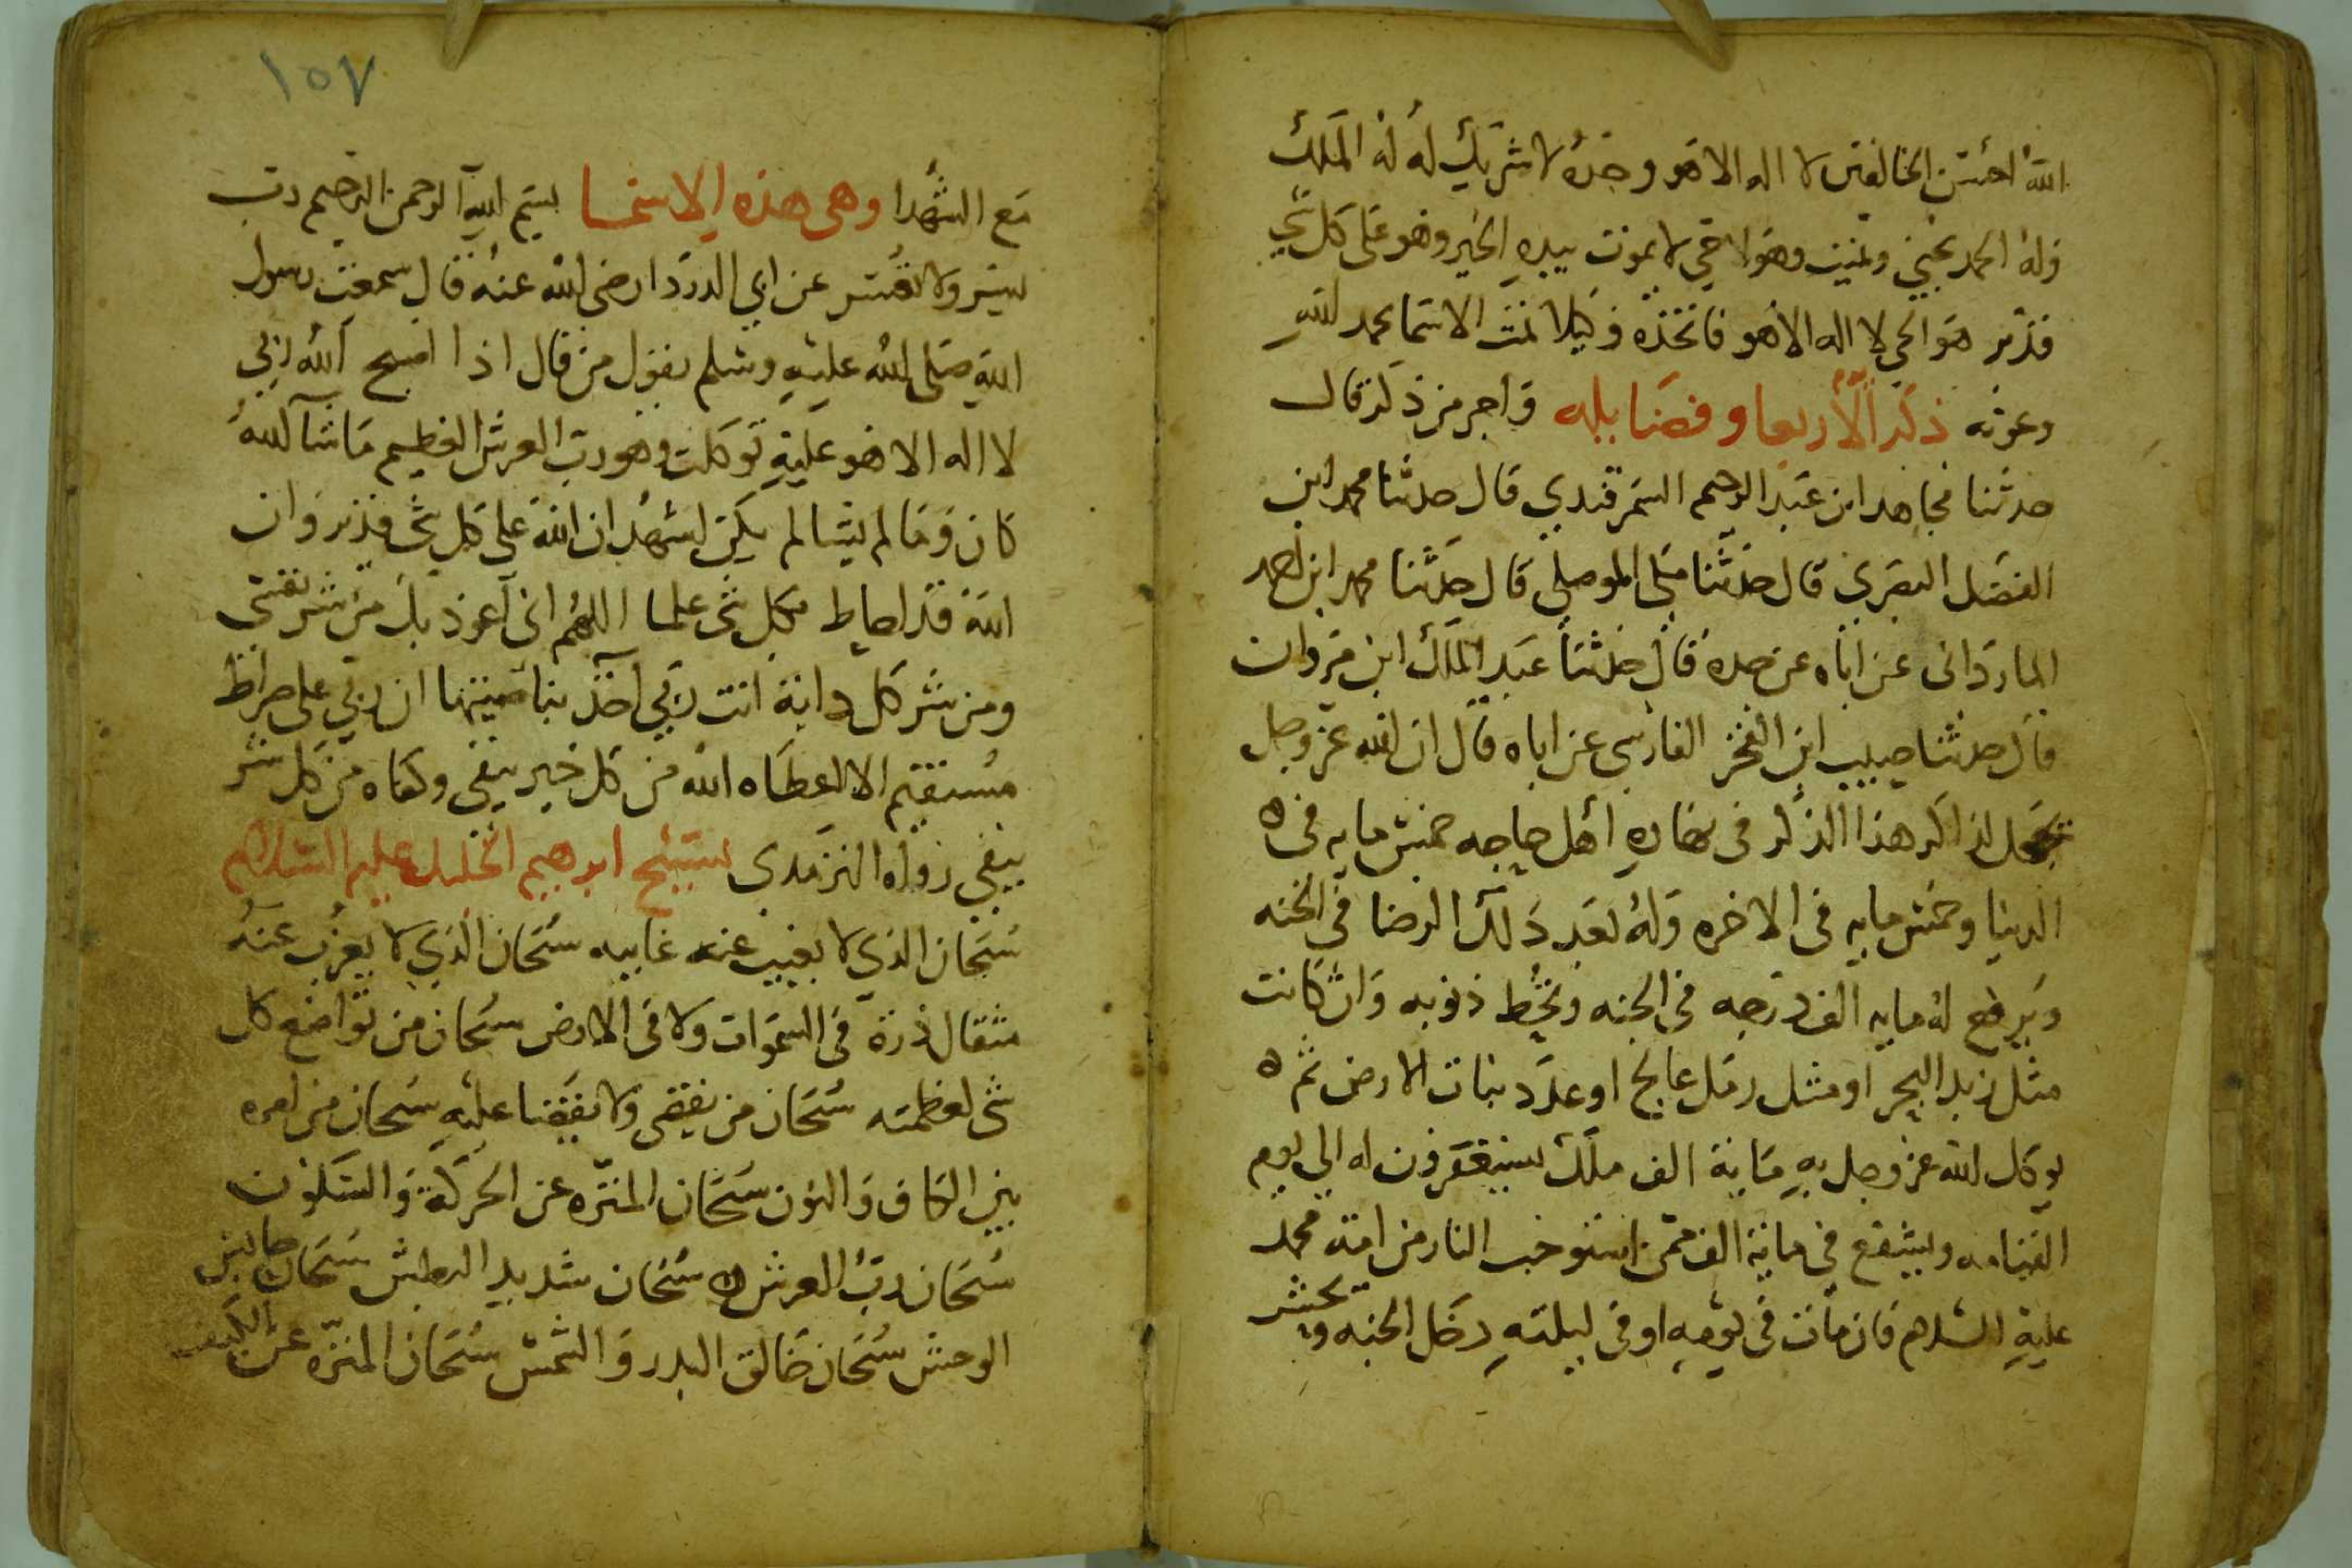 الله احسن الخالقين لا اله الا هو وحده لا شريك له له الملك
وله الحمد يحيي ويميت وهو حي لا يموت بيده الخير وهو على كل شي
قدير هو الحي لا اله الا هو فاتخذه وكيلا تمت الاسما بحمد الله
وعونه ذكر الأربعا وفضايله واجر من ذكر قال
حدثنا مجاهد ابن عبد الرحيم السمرقندي قال حدثنا محمد ابن
الفضل البصري قال حدثنا علي الموصلي قال حدثنا محمد ابن احمد
الماردانى عن اباه عن جده قال حدثنا عبد الملك ابن مروان
قال حدثنا حبيب ابن الفخر الفارسي عن اباه قال ان الله عز وجل
يجعل لذاكر هذا الذكر فى نهاره اهل حاجه خمس مايه فى ه
الدنيا وخمس مايه فى الاخره وله بعد ذلك الرضا في الجنه
ويرفع له مايه الف درجه فى الجنه وتحط ذنوبه وان كانت
مثل زبد البحر او مثل رمل عالج او عدد نبات الارض ثم ه
يوكل الله عز وجل به ماية الف ملك يستغفرون له الي يوم
القيامه ويشفع في ماية الف ممن استوجب النار من امة محمد
عليه السلام فان مات فى يومه او فى ليلته دخل الجنه ويحشر
١٥٧
مع الشهدا وهى هذه الاسما بسم الله الرحمن الرحيم رب
يسر ولا تعسر عن ابي الدردا رضى الله عنه قال سمعت رسول
الله صلى الله عليه وسلم يقول من قال اذا اصبح الله ربي
لا اله الا هو عليه توكلت وهو رب العرش العظيم ما شا الله
كان وما لم يشا لم يكن اشهد ان الله على كل شى قدير وان
الله قد احاط بكل شى علما اللهم اني اعوذ بك من شر نفسي
ومن شر كل دابة انت ربي اخذ بناصيتها ان ربي على صراط
مستقيم الا اعطاه الله من كل خير يبغي وكفاه من كل شر
يبغي رواه الترمدي تسبيح ابرهيم الخليل عليه السلام
سبحان الذي لا يغيب عنه غايبه سبحان الذي لا يعزب عنه
مثقال ذرة فى السموات ولا فى الارض سبحان من تواضع كل
شى لعظمته سبحان من يقضى ولا يقضا عليه سبحان من امره
بين الكاف والنون سبحان المنزه عن الحركة والسكون
سبحان رب العرش ه سبحان شديد البطش سبحان
الوحش سبحان خالق البدر والشمس سبحان المنزه عن الكيف